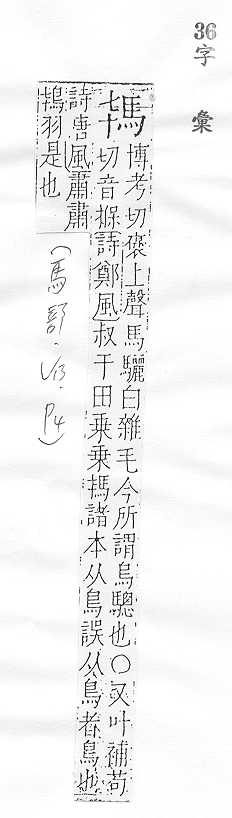 36
字彙
駂 博考切褒上聲馬驪白雜毛今所謂烏驄也〇又叶補苟
切音掊詩鄭風叔于田乗乗駂諸本从鳥誤从鳥者鳥也
詩唐風肅肅
鴇羽是也
(馬部.V13.P4)